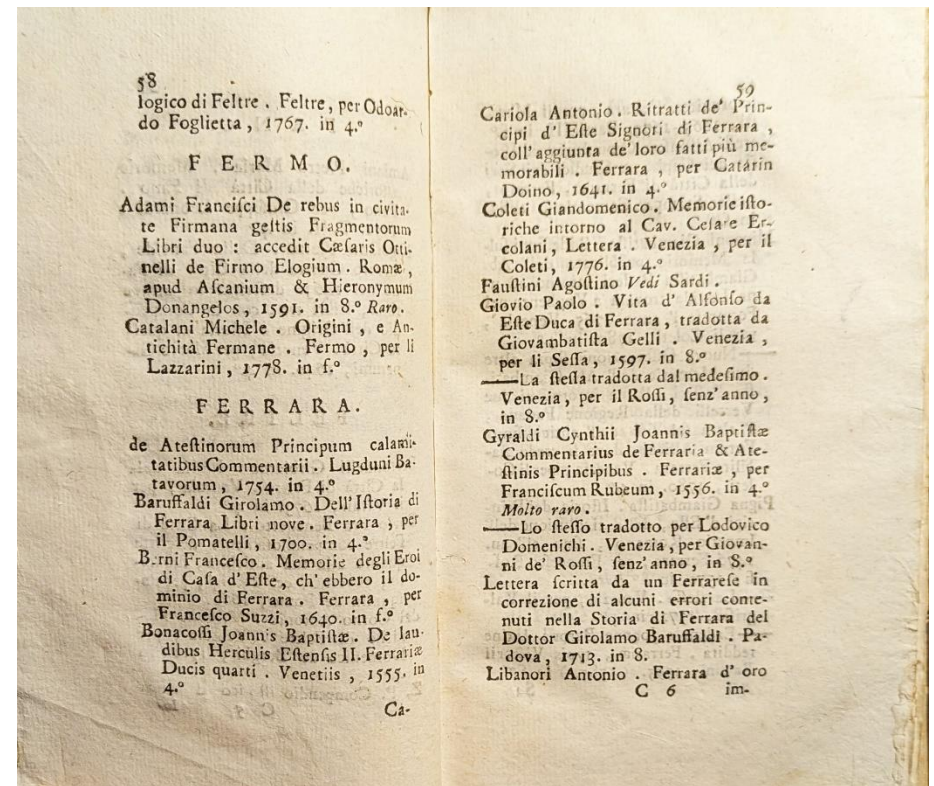 58
logico di Feltre . Feltre, per Odoar-
do Foglietta , 1767. in 4.º
FERMO.
Adami Franciſci De rebus in civita-
te Firmana geſtis Fragmentorum
Libri duo : accedit Cæſaris Otti-
nelli de Firmo Elogium . Romæ ,
apud Aſcanium & Hieronymum
Donangelos , 1591. in 8.º Raro.
Catalani Michele . Origini , e An-
tichità Fermane . Fermo , per li
Lazzarini , 1778. in f.º
FERRARA.
de Ateſtinorum Principum calami-
tatibus Commentarii . Lugduni Ba-
tavorum , 1754. in 4.º
Baruffaldi Girolamo . Dell' Iſtoria di
Ferrara Libri nove . Ferrara , per
il Pomatelli , 1700. in 4.º
Berni Franceſco . Memorie degli Eroi
di Caſa d' Eſte , ch' ebbero il do-
minio di Ferrara . Ferrara , per
Franceſco Suzzi , 1640. in f.º
Bonacoſſi Joannis Baptiſtæ . De lau-
dibus Herculis Eſtenſis II. Ferrariæ
Ducis quarti . Venetiis , 1555. in
4.º
Ca-
59
Cariola Antonio . Ritratti de' Prin-
cipi d' Eſte Signori di Ferrara ,
coll' aggiunta de' loro fatti più me-
morabili . Ferrara , per Catarin
Doino , 1641. in 4.º
Coleti Giandomenico . Memorie iſto-
riche intorno al Cav. Ceſare Er-
colani , Lettera . Venezia , per il
Coleti , 1776. in 4.º
Fauſtini Agoſtino Vedi Sardi .
Giovio Paolo . Vita d' Alfonſo da
Eſte Duca di Ferrara , tradotta da
Giovambatiſta Gelli . Venezia ,
per li Seſſa , 1597. in 8.º
——La ſteſſa tradotta dal medeſimo .
Venezia , per il Roſſi , ſenz' anno ,
in 8.º
Gyraldi Cynthii Joannis Baptiſtæ
Commentarius de Ferraria & Ate-
ſtinis Principibus . Ferrariæ , per
Franciſcum Rubeum , 1556. in 4.º
Molto raro .
——Lo ſteſſo tradotto per Lodovico
Domenichi . Venezia , per Giovan-
ni de' Roſſi , ſenz' anno , in 8.º
Lettera ſcritta da un Ferrareſe in
correzione di alcuni errori conte-
nuti nella Storia di Ferrara del
Dottor Girolamo Baruffaldi . Pa-
dova , 1713. in 8.
Libanori Antonio . Ferrara d' oro
C 6 im-